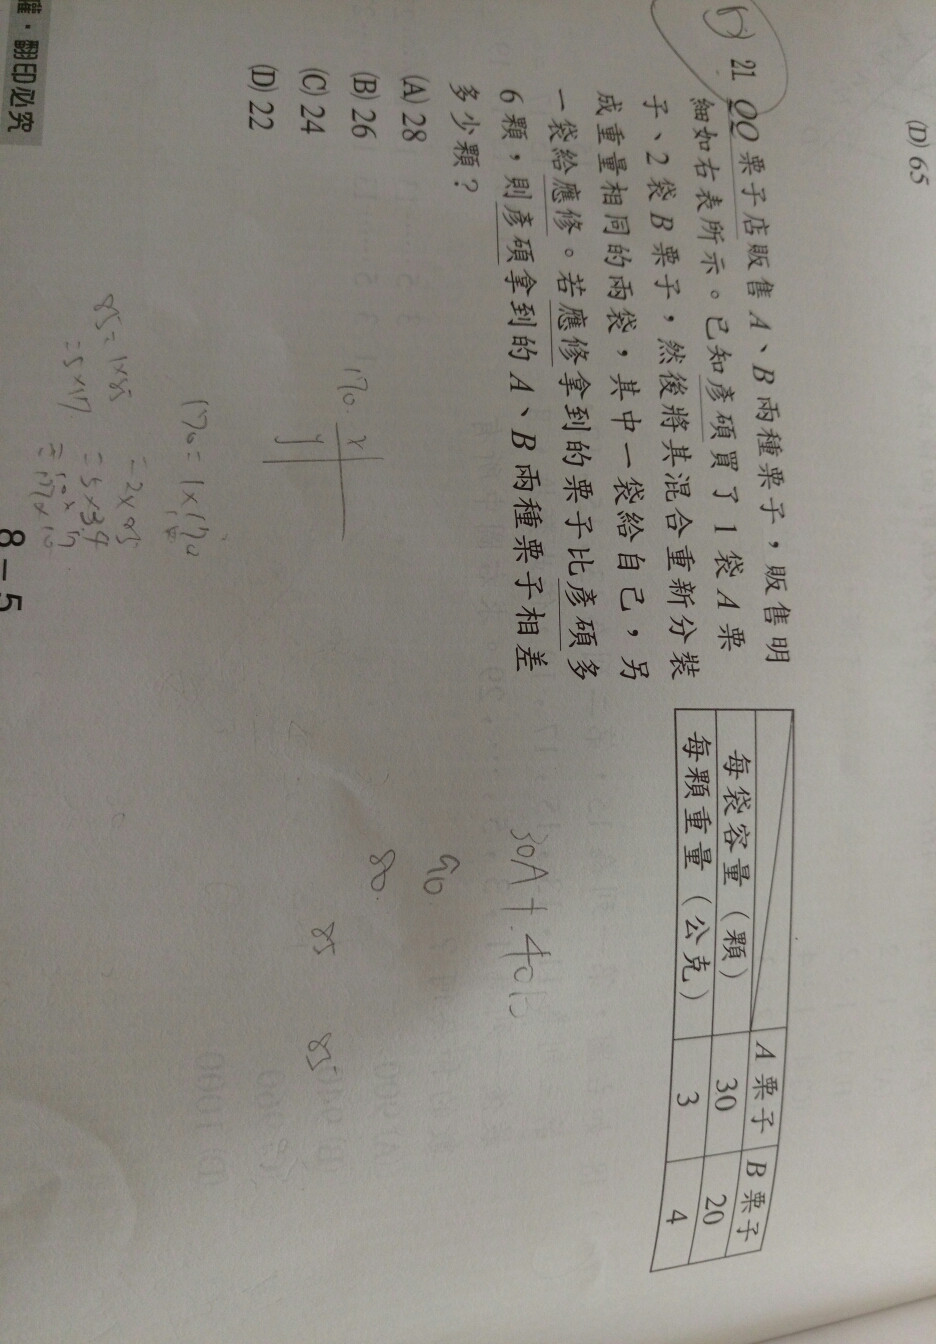 (D) 65
21 QQ栗子店販售A、B兩種栗子，販售明
細如右表所示。已知彥碩買了1袋A栗
子、2袋B栗子，然後將其混合重新分裝
成重量相同的兩袋，其中一袋給自己，另
一袋給應修。若應修拿到的栗子比彥碩多
6顆，則彥碩拿到的A、B兩種栗子相差
多少顆？
(A) 28
(B) 26
(C) 24
(D) 22
A栗子 B栗子
每袋容量（顆） 30 20
每顆重量（公克） 3 4
30A + 40B
90
80
85 85
170 x
y
170 = 1×170
= 2×85
= 5×34
= 10×17
= 17×10
85 = 1×85
= 5×17
權．翻印必究
8－5